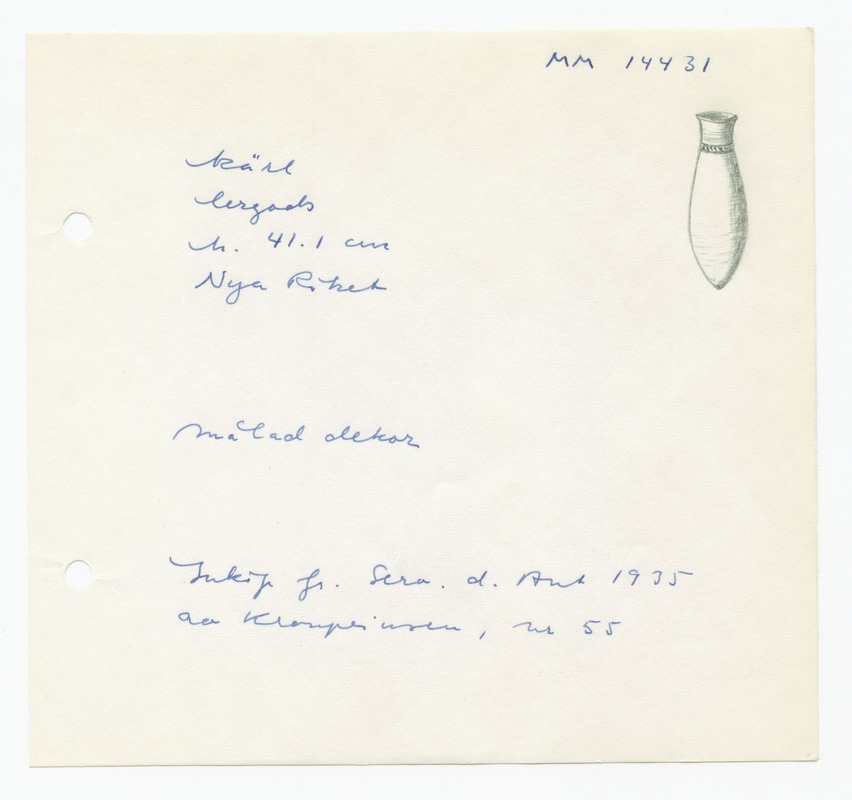 MM 14431
kärl
lergods
h. 41.1 cm
Nya Riket
målad dekor
Inköp fr. Serv. d. Ant 1935
av Kronprinsen, nr 55